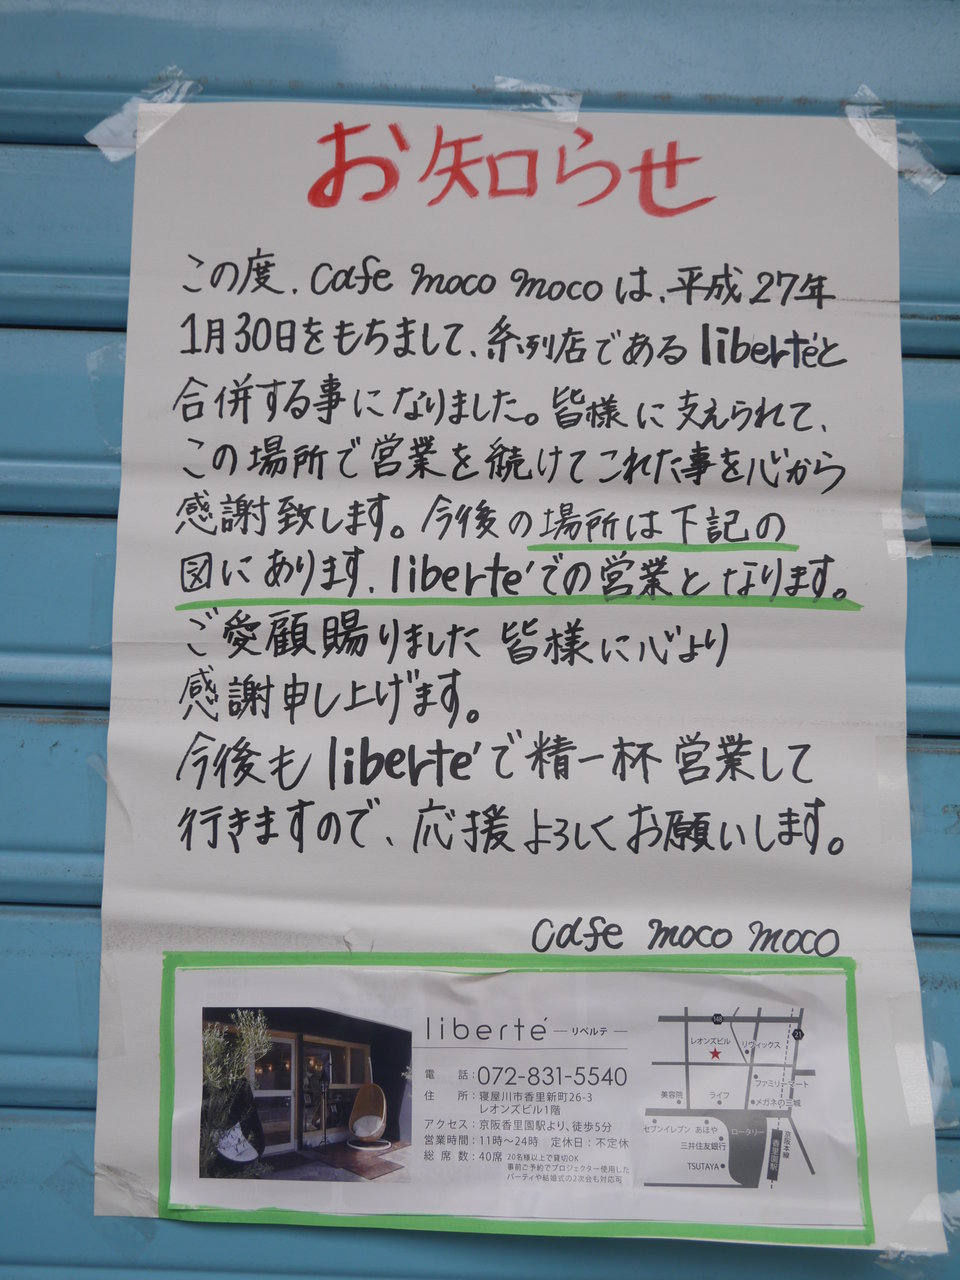 お知らせ
この度、cafe moco mocoは、平成27年
1月30日をもちまして、系列店であるlibertéと
合併する事になりました。皆様に支えられて、
この場所で営業を続けてこれた事を心から
感謝致します。今後の場所は下記の
図にあります、libertéでの営業となります。
ご愛顧賜りました皆様に心より
感謝申し上げます。
今後もlibertéで精一杯営業して
行きますので、応援よろしくお願いします。
cafe moco moco
liberté ─ リベルテ ─
電話:072-831-5540
住所:寝屋川市香里新町26-3
レオンズビル1階
アクセス:京阪香里園駅より、徒歩5分
営業時間:11時〜24時 定休日:不定休
総席数:40席 20名様以上で貸切OK
事前ご予約でプロジェクター使用した
パーティや結婚式の2次会も対応可
148
21
レオンズビル
リヴィックス
ファミリーマート
美容院
ライフ
メガネの三城
セブンイレブン
あほや
ロータリー
三井住友銀行
TSUTAYA
香里園駅
京阪本線